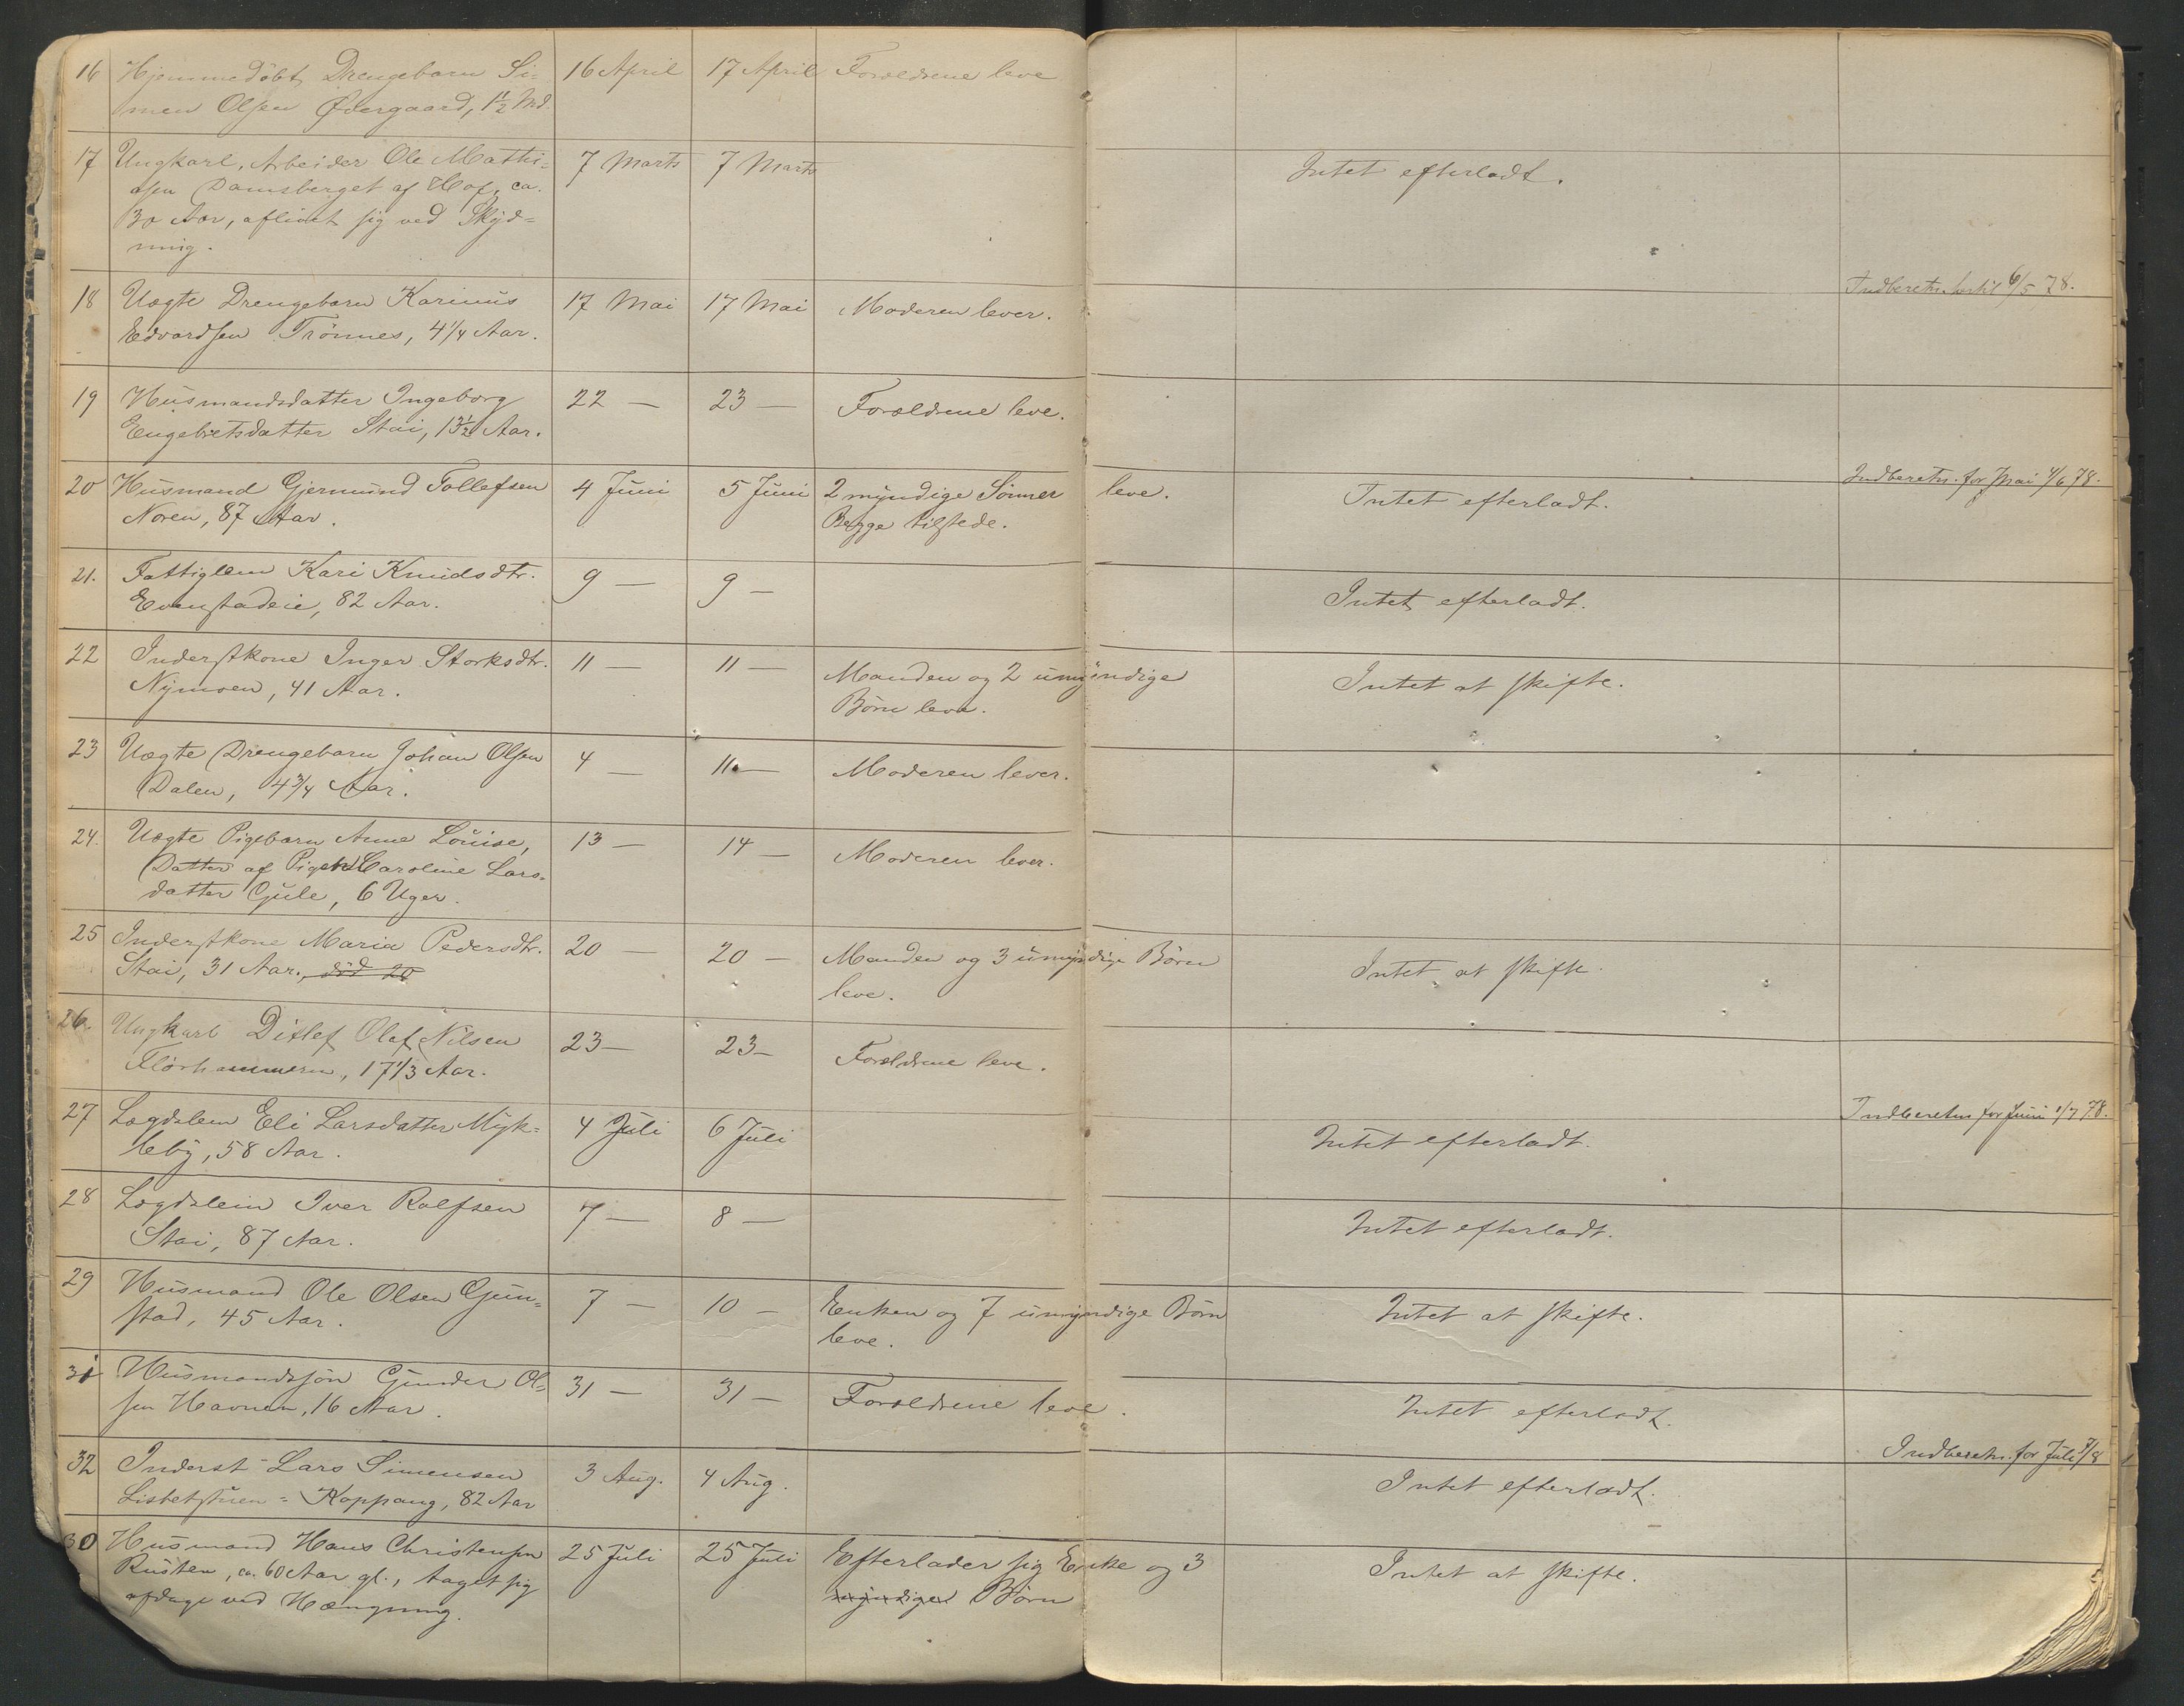 16 Hjemmedøbt Drengebarn Si- 16 April 17 April Forældrene leve
men Olsen Øvergaard, 1 1/2 Md.
17 Ungkarl, Arbeider Ole Mathi- 7 Marts 7 Marts Intet efterladt.
sen Damsberget af Hof, ca.
30 Aar, aflivet sig ved Skyd-
ning.
Indberetn. 6/5 78.
18 Uægte Drengebarn Karinus 17 Mai 17 Mai Moderen lever.
Edvardsen Trønnes, 4 1/4 Aar.
19 Husmandsdatter Ingeborg 22 — 23 — Forældrene leve.
Engebretsdatter Stai, 13 1/2 Aar.
Indberetn. for Mai 4/6 78.
20 Husmand Gjermund Tollefsen 4 Juni 5 Juni 2 myndige Sønner leve. Intet efterladt.
Noren, 87 Aar. Begge tilstede.
21. Fattiglem Kari Knudsdtr. 9 — 9 — Intet efterladt.
Evenstadeie, 82 Aar.
22 Inderstkone Inger Storksdtr. 11 — 11 — Manden og 2 umyndige Intet at skifte.
Nymoen, 41 Aar. Børn leve.
23 Uægte Drengebarn Johan Olsen 4 — 11 — Moderen lever.
Dalen, 4 3/4 Aar.
24. Uægte Pigebarn Anne Louise, 13 — 14 — Moderen lever.
Datter af Pigen Caroline Lars-
datter Gule, 6 Uger.
25 Inderstkone Maria Pedersdtr. 20 — 20 — Manden og 3 umyndige Børn Intet at skifte.
Stai, 31 Aar., død 20 leve.
26. Ungkarl Ditlef Olaf Nilsen 23 — 23 — Forældrene leve.
Flørhammeren, 17 1/3 Aar.
Indberetn for Juni 1/7 78.
27 Lægdslem Eli Larsdatter Myk- 4 Juli 6 Juli Intet efterladt.
leby, 58 Aar.
28 Lægdslem Iver Rolfsen 7 — 8 — Intet efterladt.
Stai, 87 Aar.
29 Husmand Ole Olsen Gjun- 7 — 10 — Enken og 7 umyndige Børn Intet at skifte.
stad, 45 Aar. leve.
31 Husmandssøn Gunder Ol- 31 — 31 — Forældrene leve. Intet efterladt.
sen Havnen, 16 Aar.
Indberetn. for Juli /8
32 Inderst Lars Simensen 3 Aug. 4 Aug. Intet efterladt.
Lisbetstuen - Koppang, 82 Aar
30 Husmand Hans Christensen 25 Juli 25 Juli Efterlader sig Enke og 3 Intet at skifte.
Rusten, ca. 60 Aar gl., taget sig myndige Børn
afdage ved Hængning.